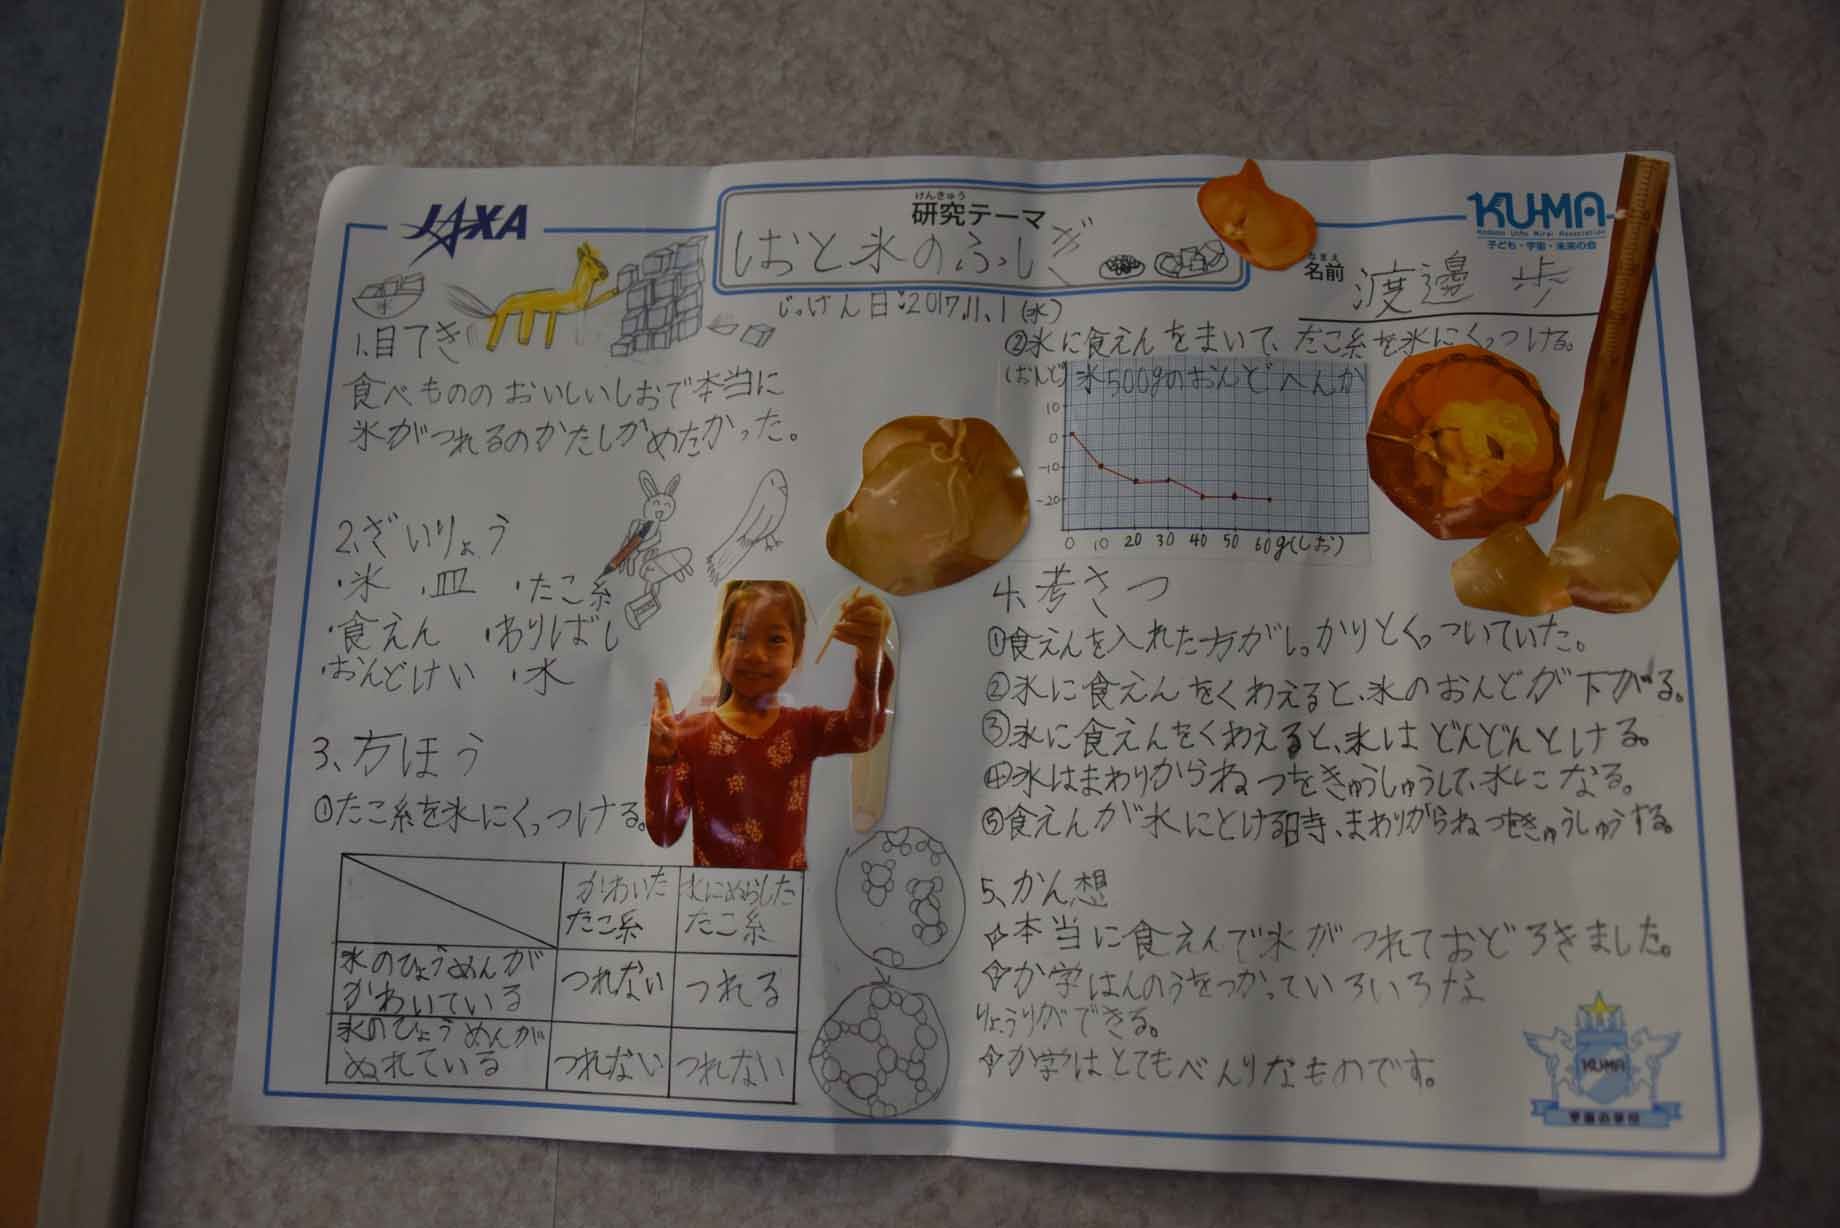 JAXA
けんきゅう
研究テーマ
しおと氷のふしぎ
じっけん日:2017.11.1(水)
KU-MA
Kodomo Uchu Mirai Association
子ども・宇宙・未来の会
なまえ
名前 渡邉 歩
1、目てき
食べもののおいしいしおで本当に
氷がつれるのかたしかめたかった。
2、ざいりょう
・氷 ・皿 ・たこ糸
・食えん ・わりばし
・おんどけい ・水
3、方ほう
①たこ糸を氷にくっつける。
かわいた
たこ糸
水にぬらした
たこ糸
氷のひょうめんが
かわいている
つれない
つれる
氷のひょうめんが
ぬれている
つれない
つれない
②氷に食えんをまいて、たこ糸を氷にくっつける。
(おんど) 氷500gのおんどへんか
10
0
-10
-20
0 10 20 30 40 50 60g(しお)
4、考さつ
①食えんを入れた方がしっかりとくっついていた。
②氷に食えんをくわえると、氷のおんどが下がる。
③氷に食えんをくわえると、氷はどんどんとける。
④氷はまわりからねつをきゅうしゅうして、水になる。
⑤食えんが水にとける時、まわりからねつをきゅうしゅうする。
5、かん想
☆本当に食えんで氷がつれておどろきました。
☆か学はんのうをつかっていろいろな
りょうりができる。
☆か学はとてもべんりなものです。
KUMA
宇宙の学校